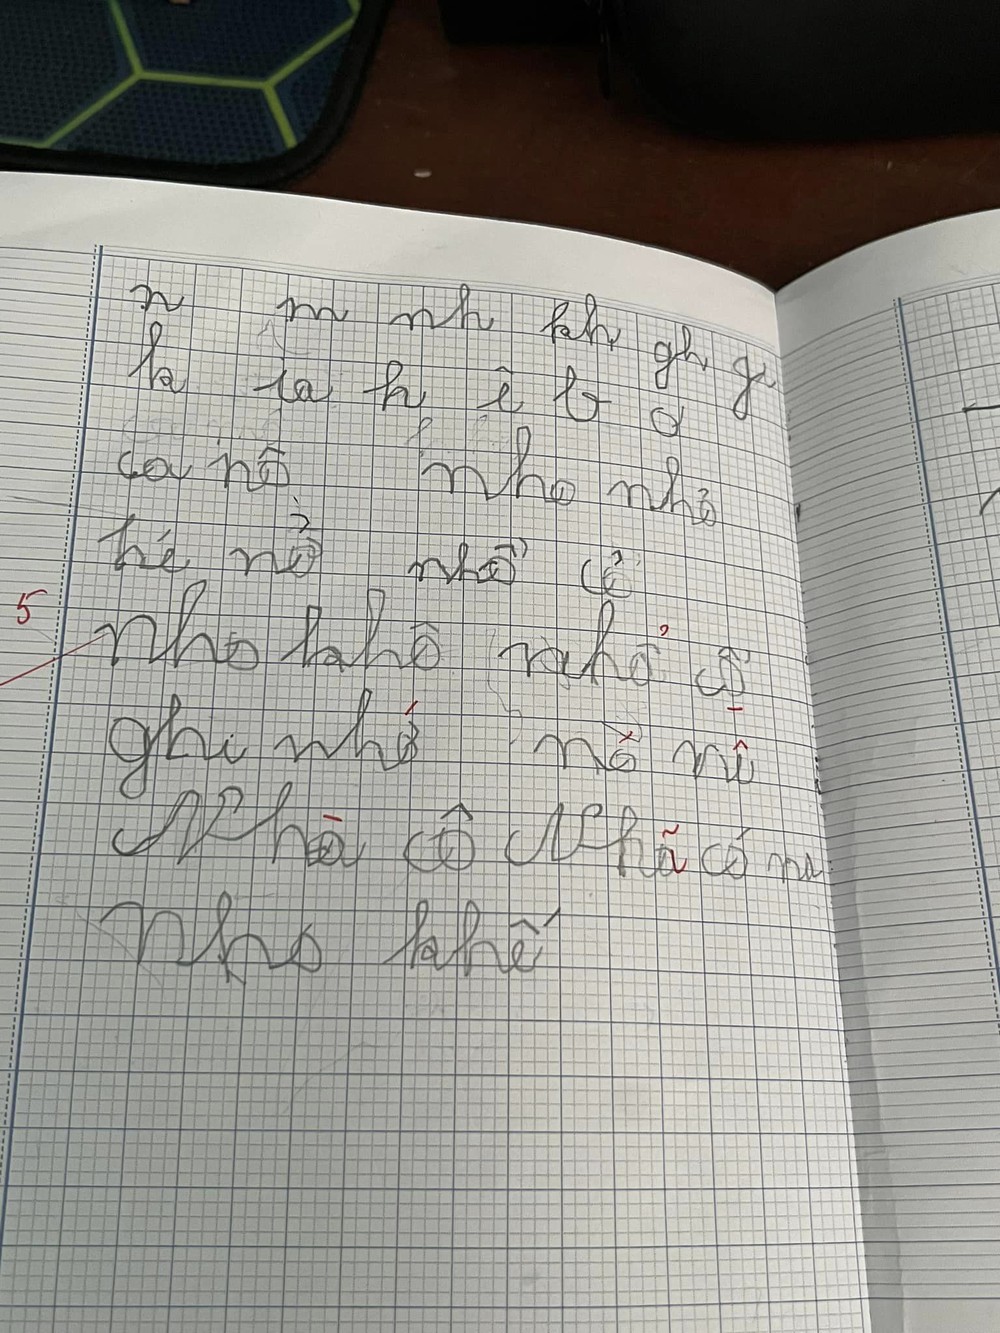 n m nh kh gh g
k ia h ê b ơ
ca nô nho nhỏ
hé nở nhổ cỏ
5
nho khô nhổ cỏ
ghi nhớ nơ
Nhà cô Nhã có na
nho khế